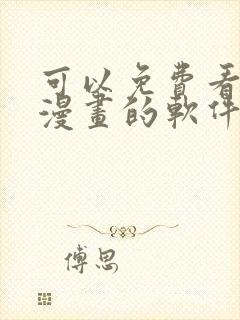 可以免費看
漫畫的軟件
傅思